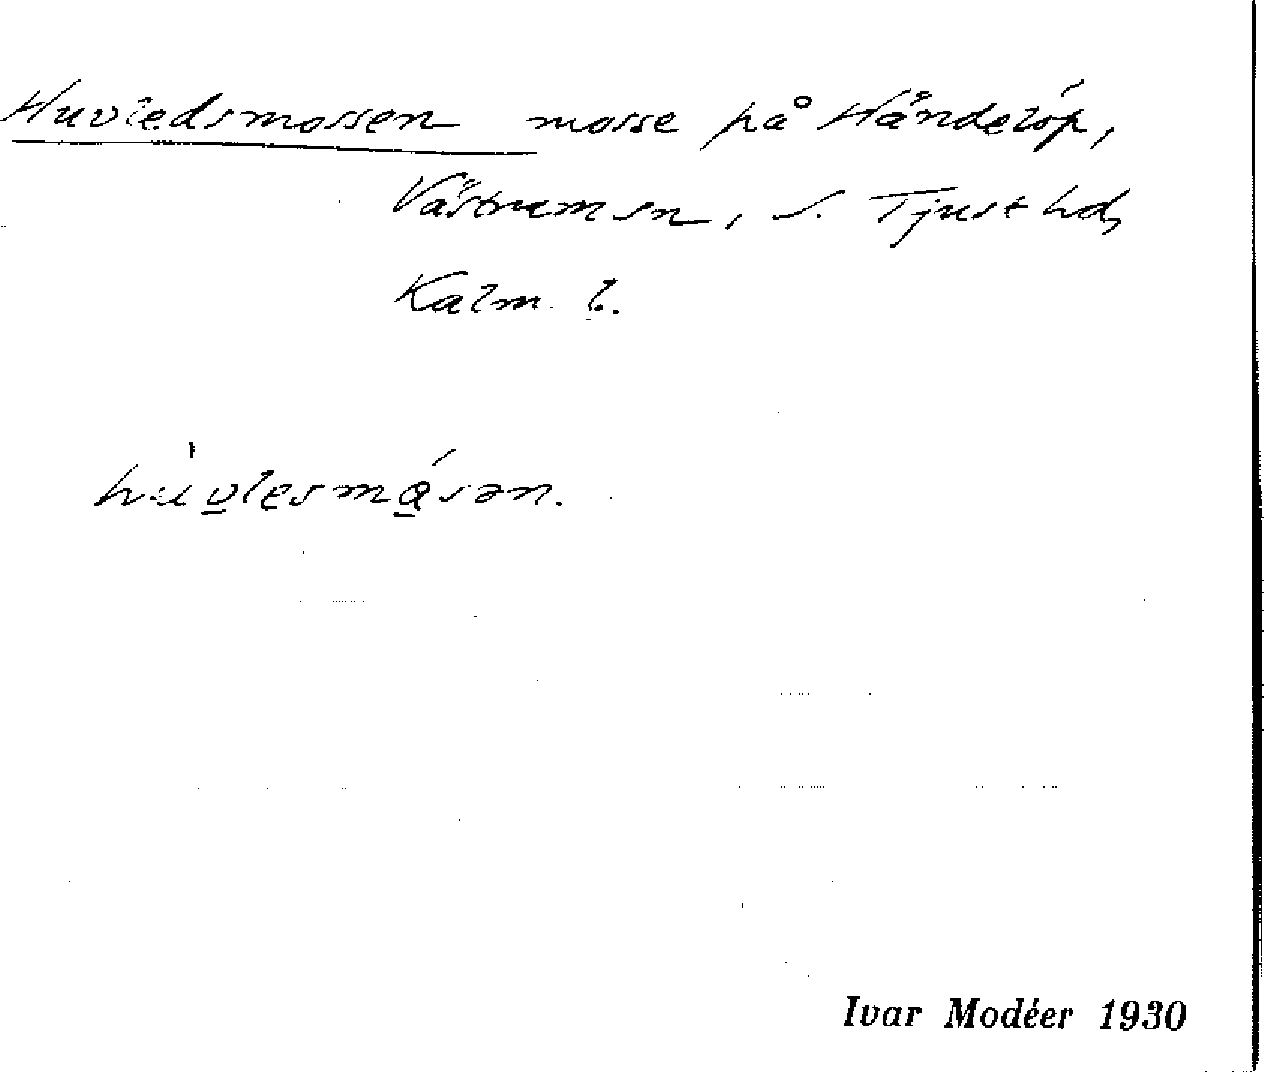 Huvledsmossen mosse på Händelöp,
Västrum sn, S. Tjust hd,
Kalm. l.
hùvlesmásən.
Ivar Modéer 1930